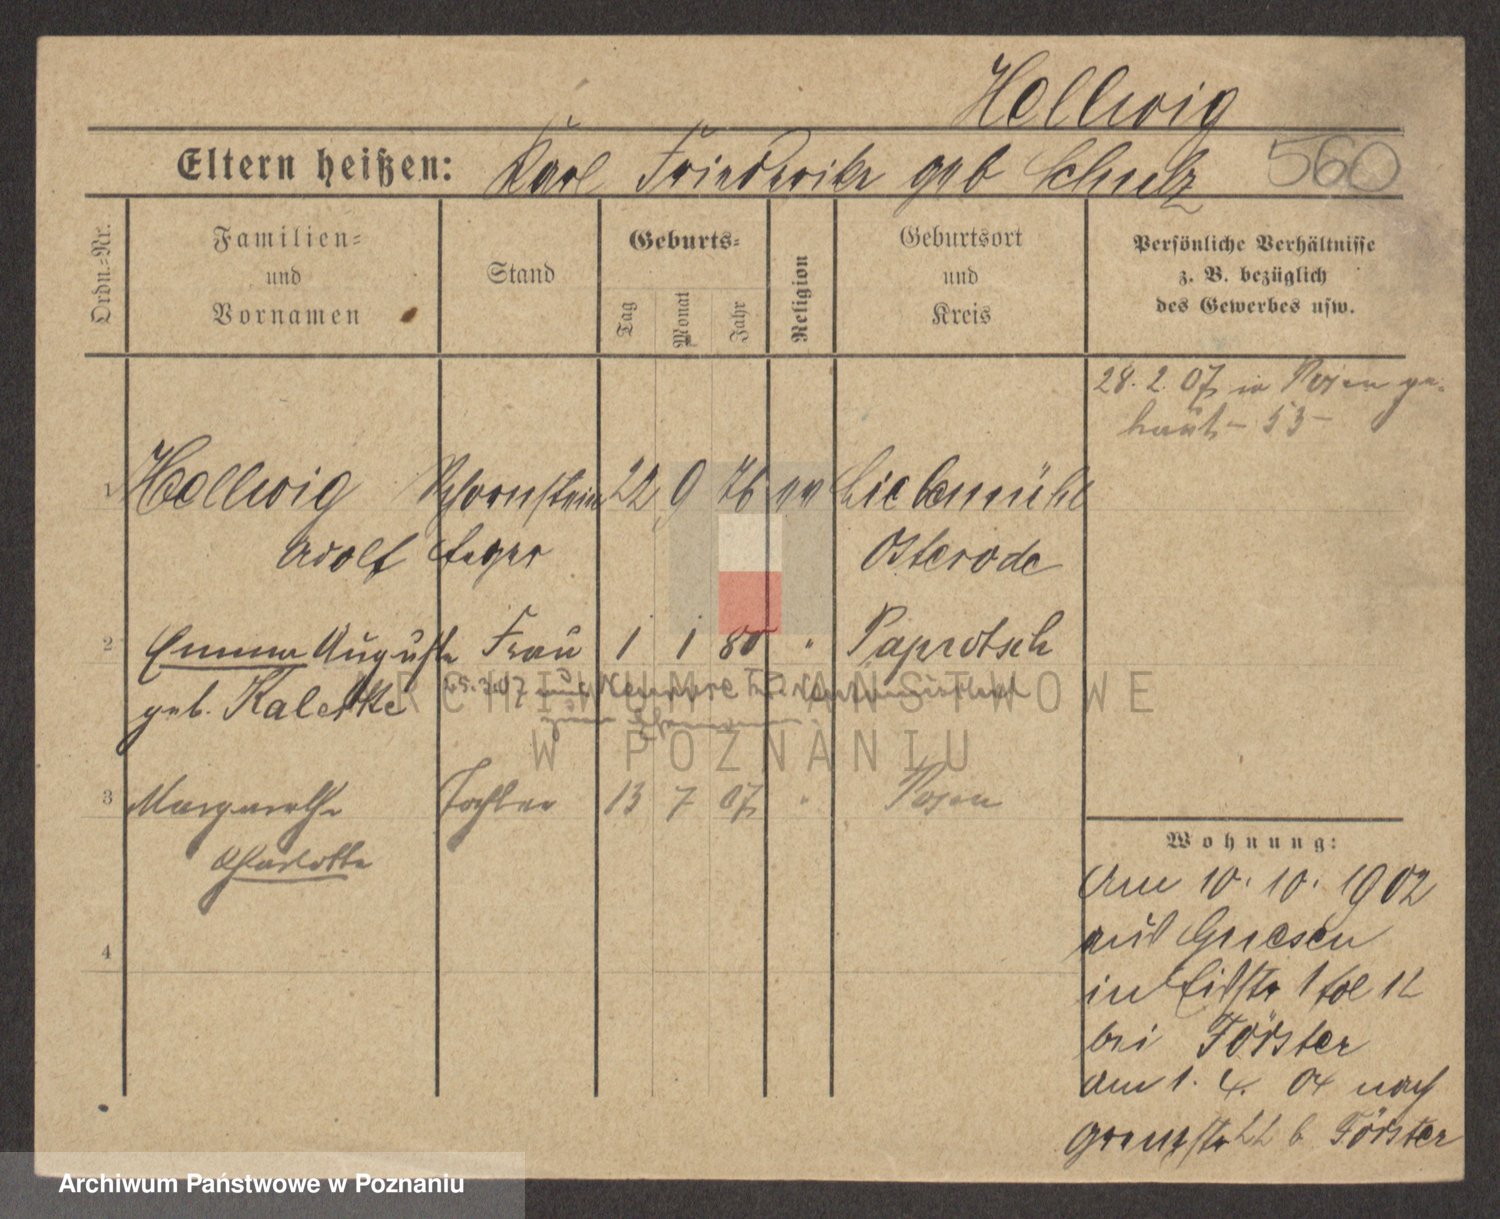 Hellwig
Eltern heißen: Karl Friederike geb Schulz
560
Ordn.-Nr.
Familien-
und
Vornamen
Stand
Geburts-
Tag
Monat
Jahr
Religion
Geburtsort
und
Kreis
Persönliche Verhältnisse
z. B. bezüglich
des Gewerbes usw.
28. 2. 07 in Posen ge-
53
1 Hellwig Schornstein 22 9 76 ev Liebemühl
Adolf feger Osterode
2 Emma Auguste Frau 1 1 80 " Paprotsch
geb. Kalettke
3 Margarethe Tochter 13 7 07 " Posen
Charlotte
4
Wohnung:
Am 10. 10. 1902
aus Gnesen
in 1
bei Förster
am 1. 4. 04 nach
Grenzstr 22 b Förster
ARCHIWUM PAŃSTWOWE
W POZNANIU
Archiwum Państwowe w Poznaniu